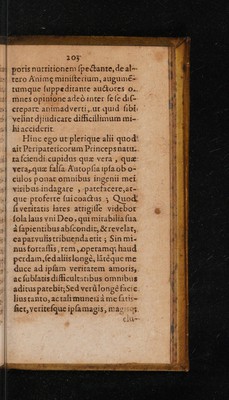 203
poris nutritionem spectante, de al-
tero Animę ministerium, augumē-
tumque suppeditante auctores o-
mnes opinione adeò inter se se dis-
crepare animadverti, ut quid sibi
velint djudicare difficilimum mi-
hi acciderit.
Hinc ego ut plerique alii quod
ait Peripateticorum Princeps natu-
ra sciendi cupidus quæ vera, quæ
vera, quæ falsa Autopsia ipsa ob o-
culos ponat omnibus ingenii mei
viribus indagare, patefacere, at-
que proferre sui coactus; Quod
si veritatis istes attigisse videbor
sola laus uni Deo, qui mirabilia sua
à sapientibus abscondit, & revelat,
ea parvulis tribuenda erit; Sin mi-
nus fortassis, rem, operamq; haud
perdam, sed aliis longè, latéque me
duce ad ipsam veritatem amoris,
ac sublatis difficultatibus omnibus
aditus patebit; Sed verū longè facie
lius tanto, ac tali muneri à me satis-
fiet, veritesque ipsa magis, magisq;
elu-